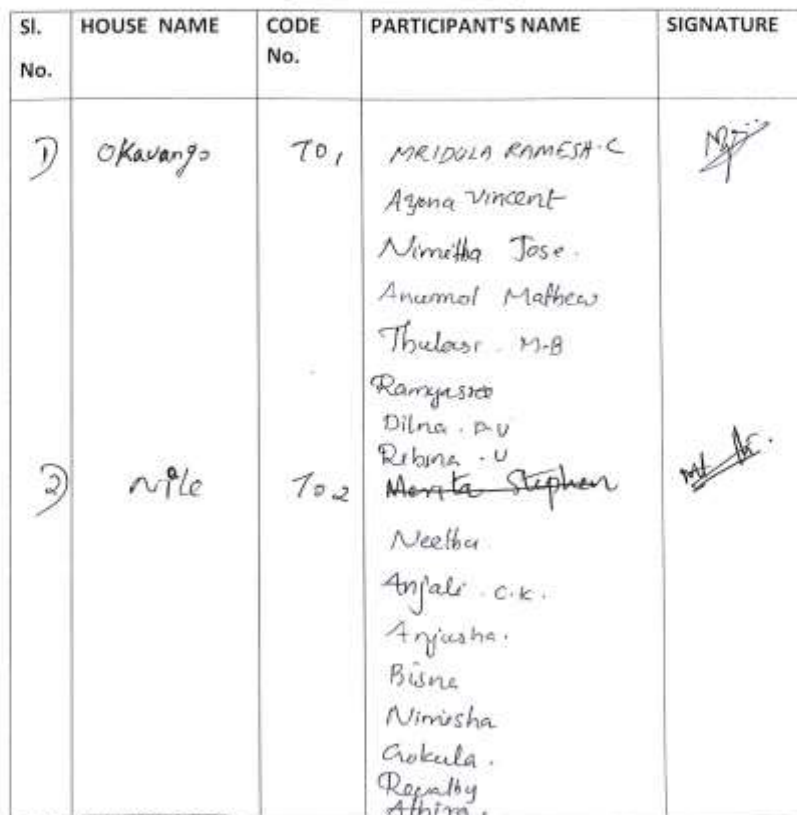 Sl. No. HOUSE NAME CODE No. PARTICIPANT'S NAME SIGNATURE
1) Okavango TO1 MRIDULA RAMESH.C
Ayona Vincent
Nimitha Jose.
Anumol Mathew
Thulasi. M.B
Ramyasree
Dilna. P.V
Rebina. U
2) Nile TO2 Merita Stephen
Neethu
Anjali. C.K.
Anjusha.
Bisna
Nimisha
Gokula.
Athira.